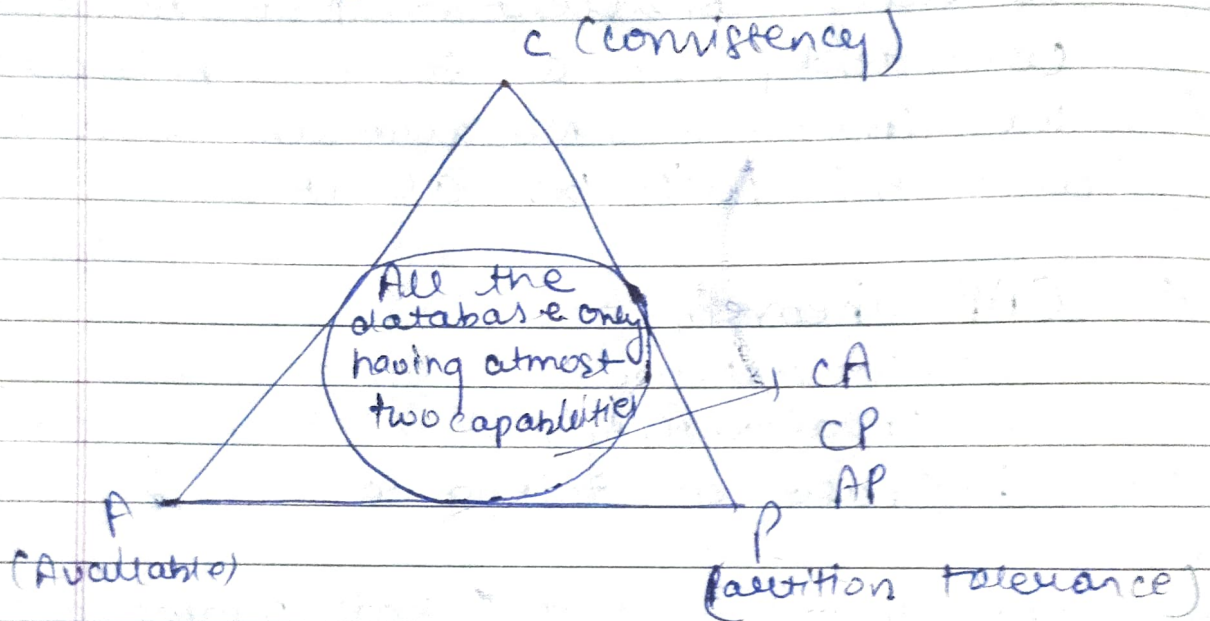 C (Consistency)
All the
database only
having atmost
two capabilities
CA
CP
AP
A
P
(Available)
(Partition tolerance)